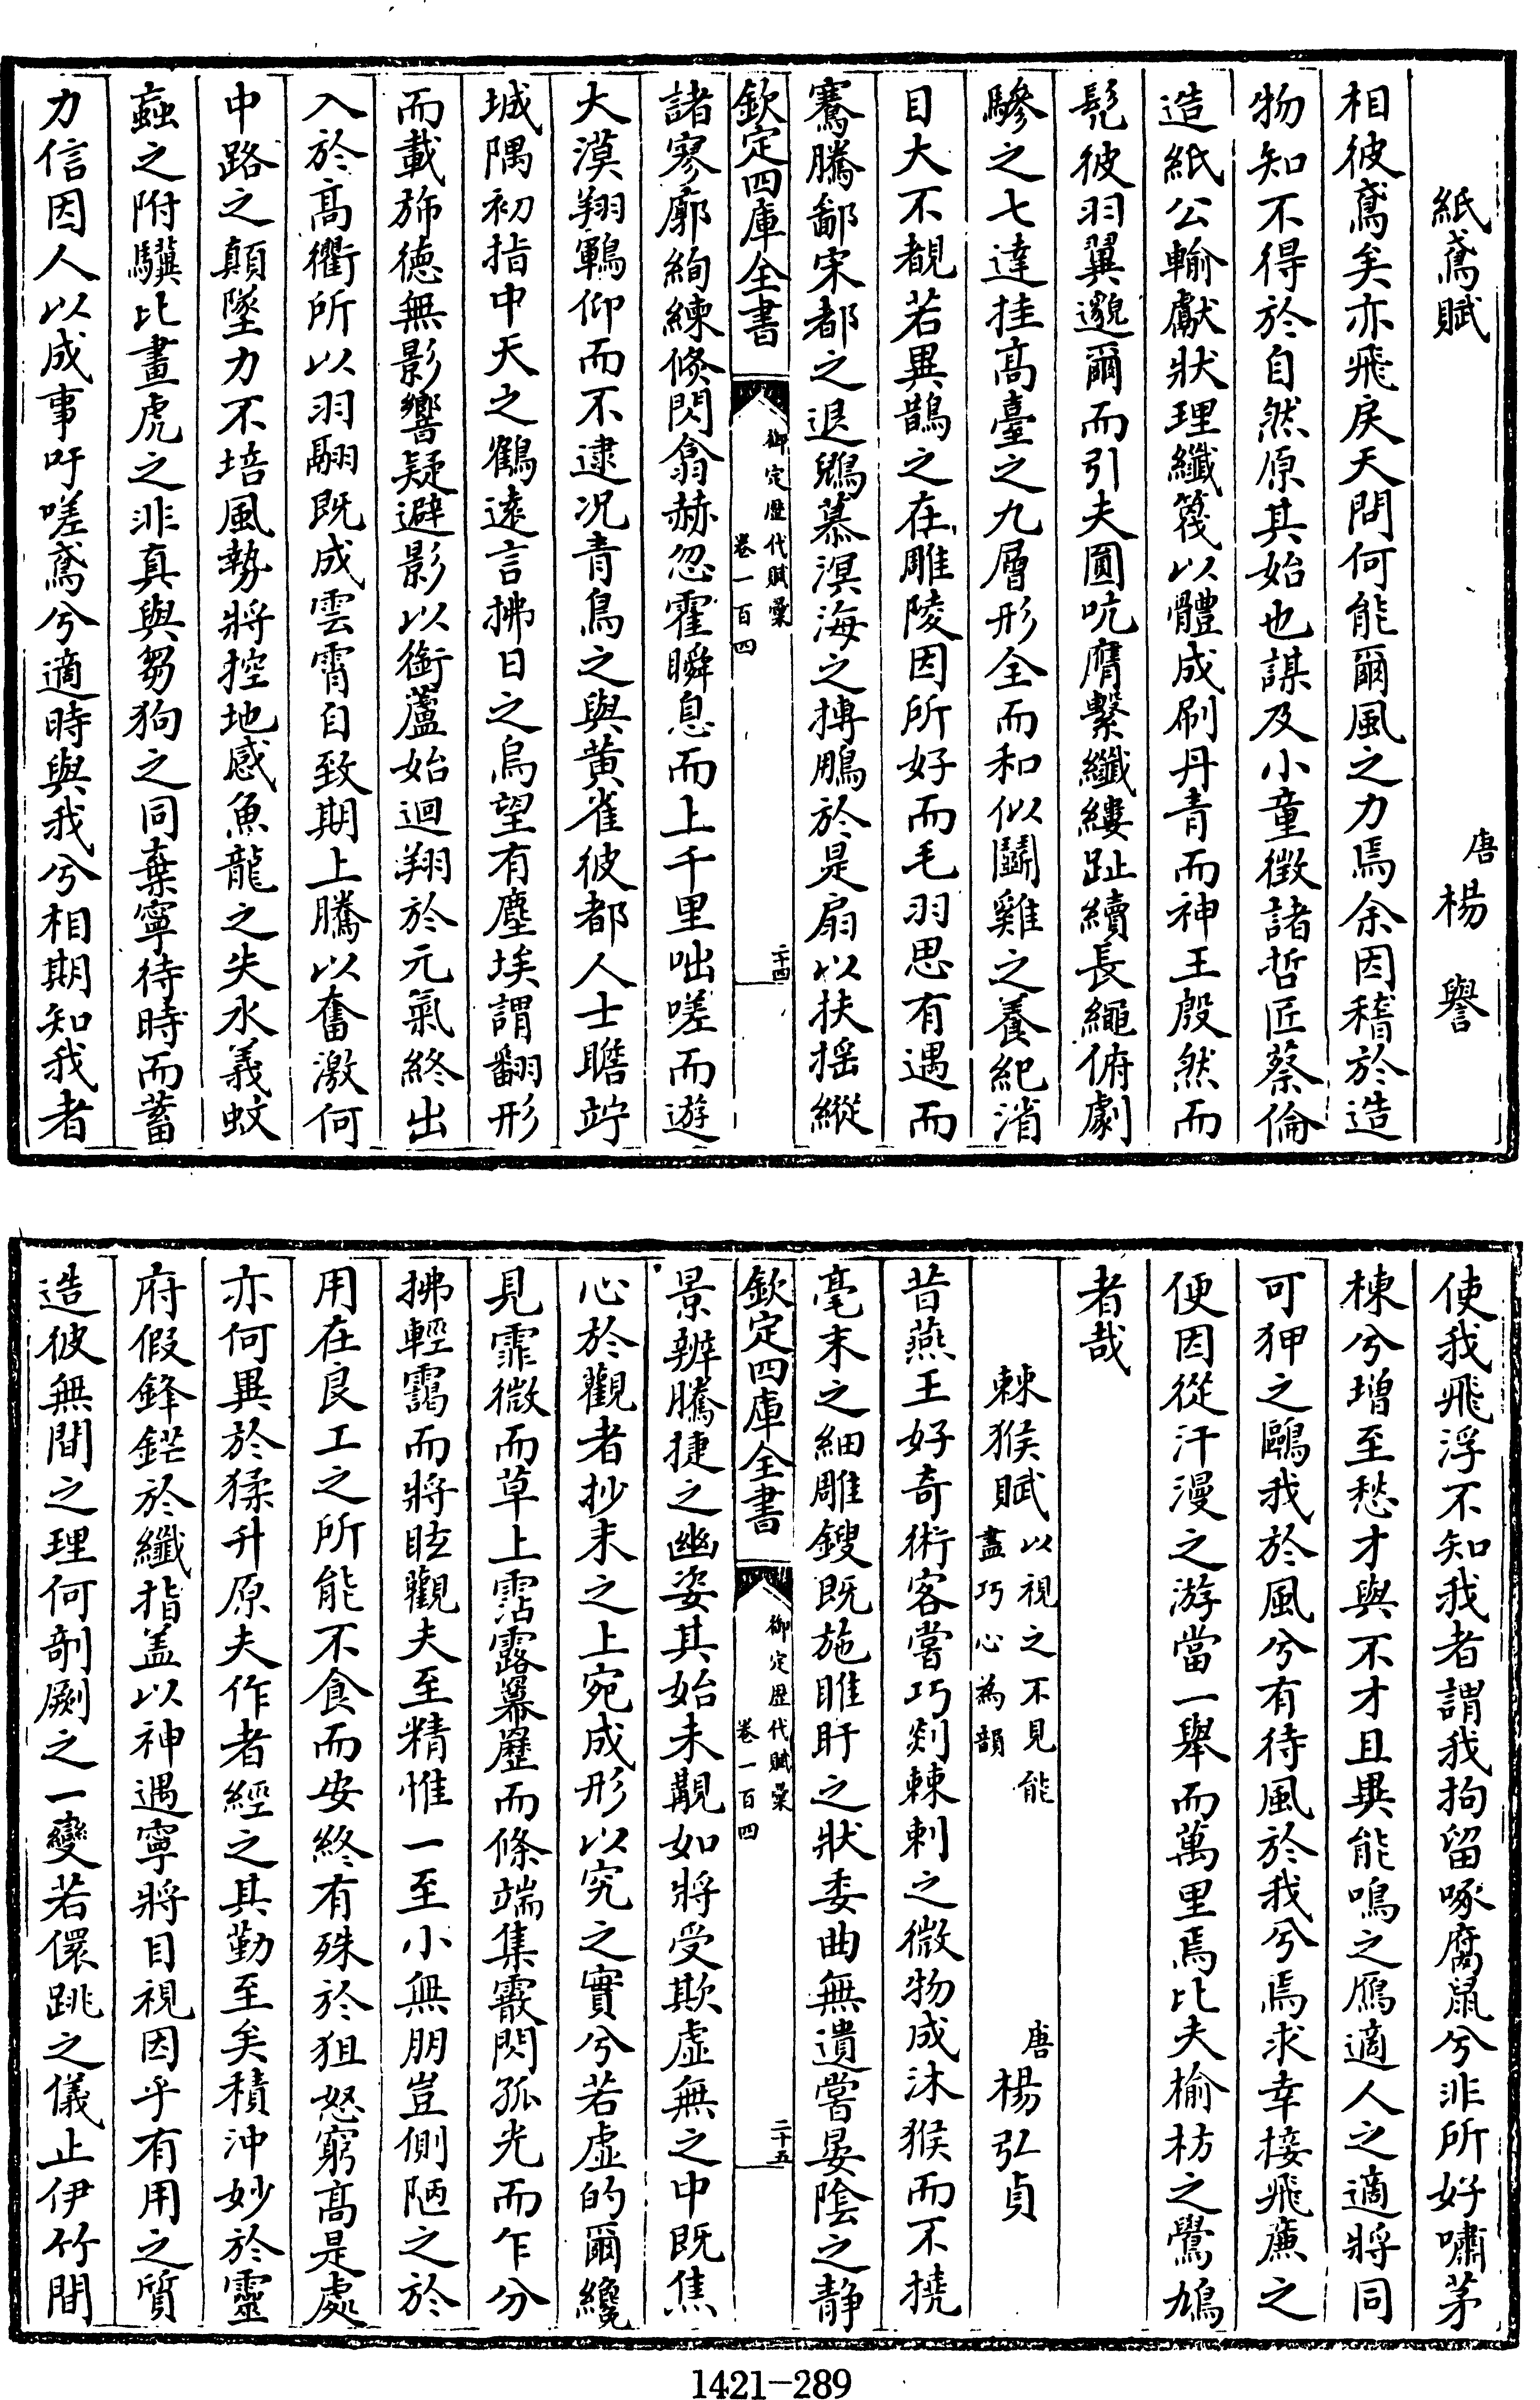 紙鳶賦
唐楊譽
相彼鳶矣亦飛戾天問何能爾風之力焉余因稽於造
物知不得於自然原其始也謀及小童徵諸哲匠蔡倫
造紙公輸獻狀理纖篾以體成刷丹青而神王殷然而
髡彼羽翼邈爾而引夫圓吭膺繫纖縷趾續長繩俯劇
驂之七達挂高臺之九層形全而和似鬬雞之養紀消
目大不覩若異鵲之在雕陵因所好而毛羽思有遇而
騫騰鄙宋都之退鷁慕溟海之摶鵬於是扇以扶搖縱
欽定四庫全書
御定歴代賦彙
卷一百四
二十四
諸寥廓絢練倏閃翕赫忽霍瞬息而上千里咄嗟而遊
大漠翔鶤仰而不逮况青鳥之與黄雀彼都人士瞻竚
城隅初指中天之鶴遠言拂日之烏望有塵埃謂翻形
而載斾德無影響疑避影以銜蘆始迴翔於元氣終出
入於高衢所以羽翮既成雲霄自致期上騰以奮激何
中路之顛墜力不培風勢將控地感魚龍之失水義蚊
蝱之附驥比畫虎之非真與芻狗之同棄寧待時而蓄
力信因人以成事吁嗟鳶兮適時與我兮相期知我者
使我飛浮不知我者謂我拘留啄腐鼠兮非所好嘯茅
棟兮增至愁才與不才且異能鳴之鴈適人之適將同
可狎之鷗我於風兮有待風於我兮焉求幸接飛亷之
便因從汗漫之游當一舉而萬里焉比夫榆枋之鷽鳩
者哉
棘猴賦
以視之不見能
盡巧心為韻
唐楊弘貞
昔燕王好奇術客嘗巧剡棘刺之微物成沐猴而不撓
毫末之細雕鎪既施睢盱之狀委曲無遺嘗晏陰之静
欽定四庫全書
御定歴代賦彙
卷一百四
二十五
景辨騰捷之幽姿其始未覯如將受欺虚無之中既焦
心於觀者抄末之上宛成形以究之實兮若虚的爾纔
見霏微而草上霑露羃䍥而條端集霰閃孤光而乍分
拂輕靄而將眩觀夫至精惟一至小無朋豈側陋之於
用在良工之所能不食而安終有殊於狙怒窮高是處
亦何異於猱升原夫作者經之其勤至矣積沖妙於靈
府假鋒鋩於纖指盖以神遇寧將目視因乎有用之質
造彼無間之理何剞劂之一變若儇跳之儀止伊竹間
1421-289